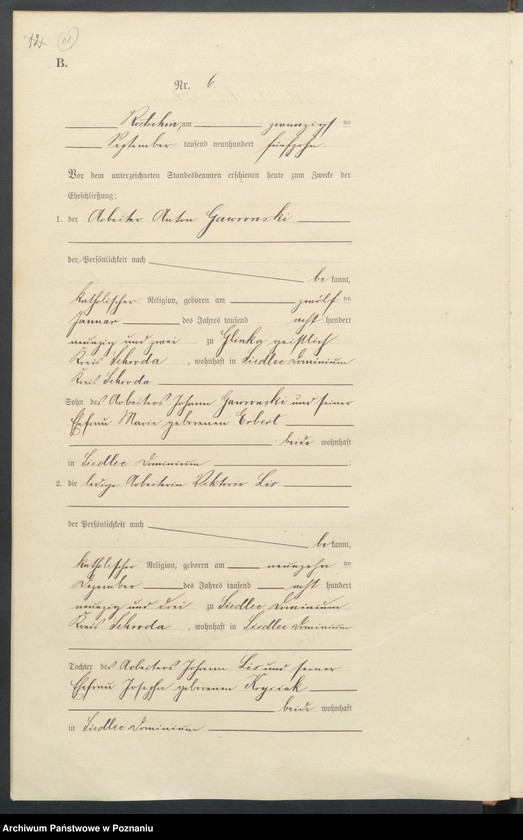 11
B.
Nr. 6.
Kostschin, am zwanzigsten
September tausend neunhundert fünfzehn.
Vor dem unterzeichneten Standesbeamten erschienen heute zum Zwecke der
Eheschließung:
1. der Arbeiter Anton Gawronski
der Persönlichkeit nach
bekannt,
katholischer Religion, geboren am zwölften
Januar des Jahres tausend acht hundert
neunzig und zwei zu Glinka geistlich
Kreis Schroda, wohnhaft in Siedlec Dominium
Kreis Schroda
Sohn des Arbeiters Johann Gawronski und seiner
Ehefrau Marie geborenen Erbert
beide wohnhaft
in Siedlec Dominium ;
2. die ledige Arbeiterin Viktorie Lis
der Persönlichkeit nach
bekannt,
katholischer Religion, geboren am neunzehnten
Dezember des Jahres tausend acht hundert
neunzig und drei zu Siedlec Dominium
Kreis Schroda, wohnhaft in Siedlec Dominium
Tochter des Arbeiters Johann Lis und seiner
Ehefrau Josepha geborenen Krysiak
beide wohnhaft
in Siedlec Dominium
Archiwum Państwowe w Poznaniu